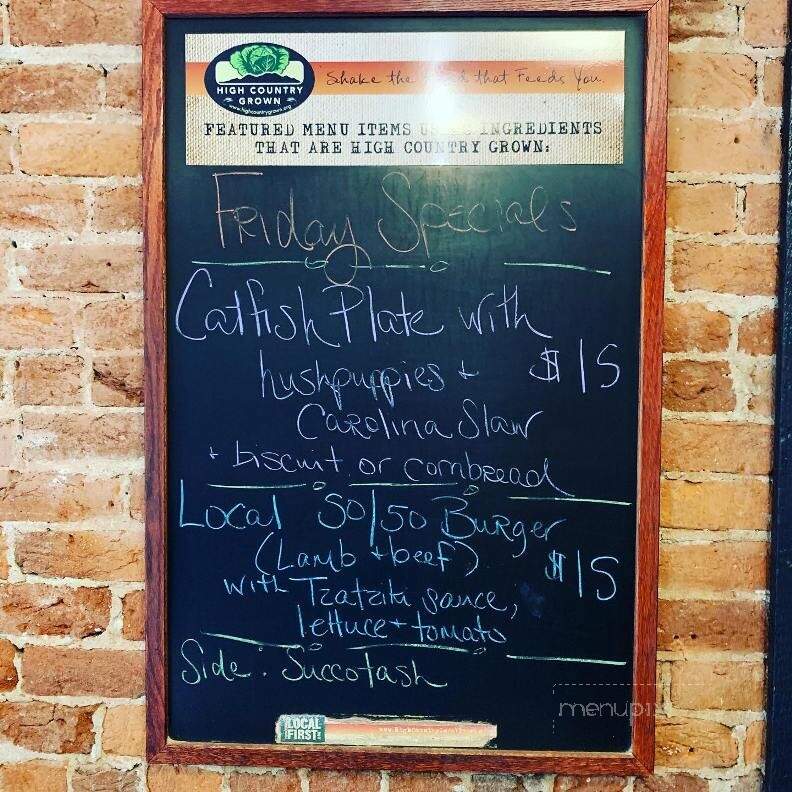 HIGH COUNTRY
GROWN
www.highcountrygrown.org
Shake the that Feeds You.
FEATURED MENU ITEMS INGREDIENTS
THAT ARE HIGH COUNTRY GROWN:
Friday Specials
Catfish Plate with
hushpuppies + $15
Carolina Slaw
+ biscuit or cornbread
Local 50/50 Burger
(Lamb + beef) $15
with Tzatziki sauce,
lettuce + tomato
Side: Succotash
menupix
LOCAL
FIRST